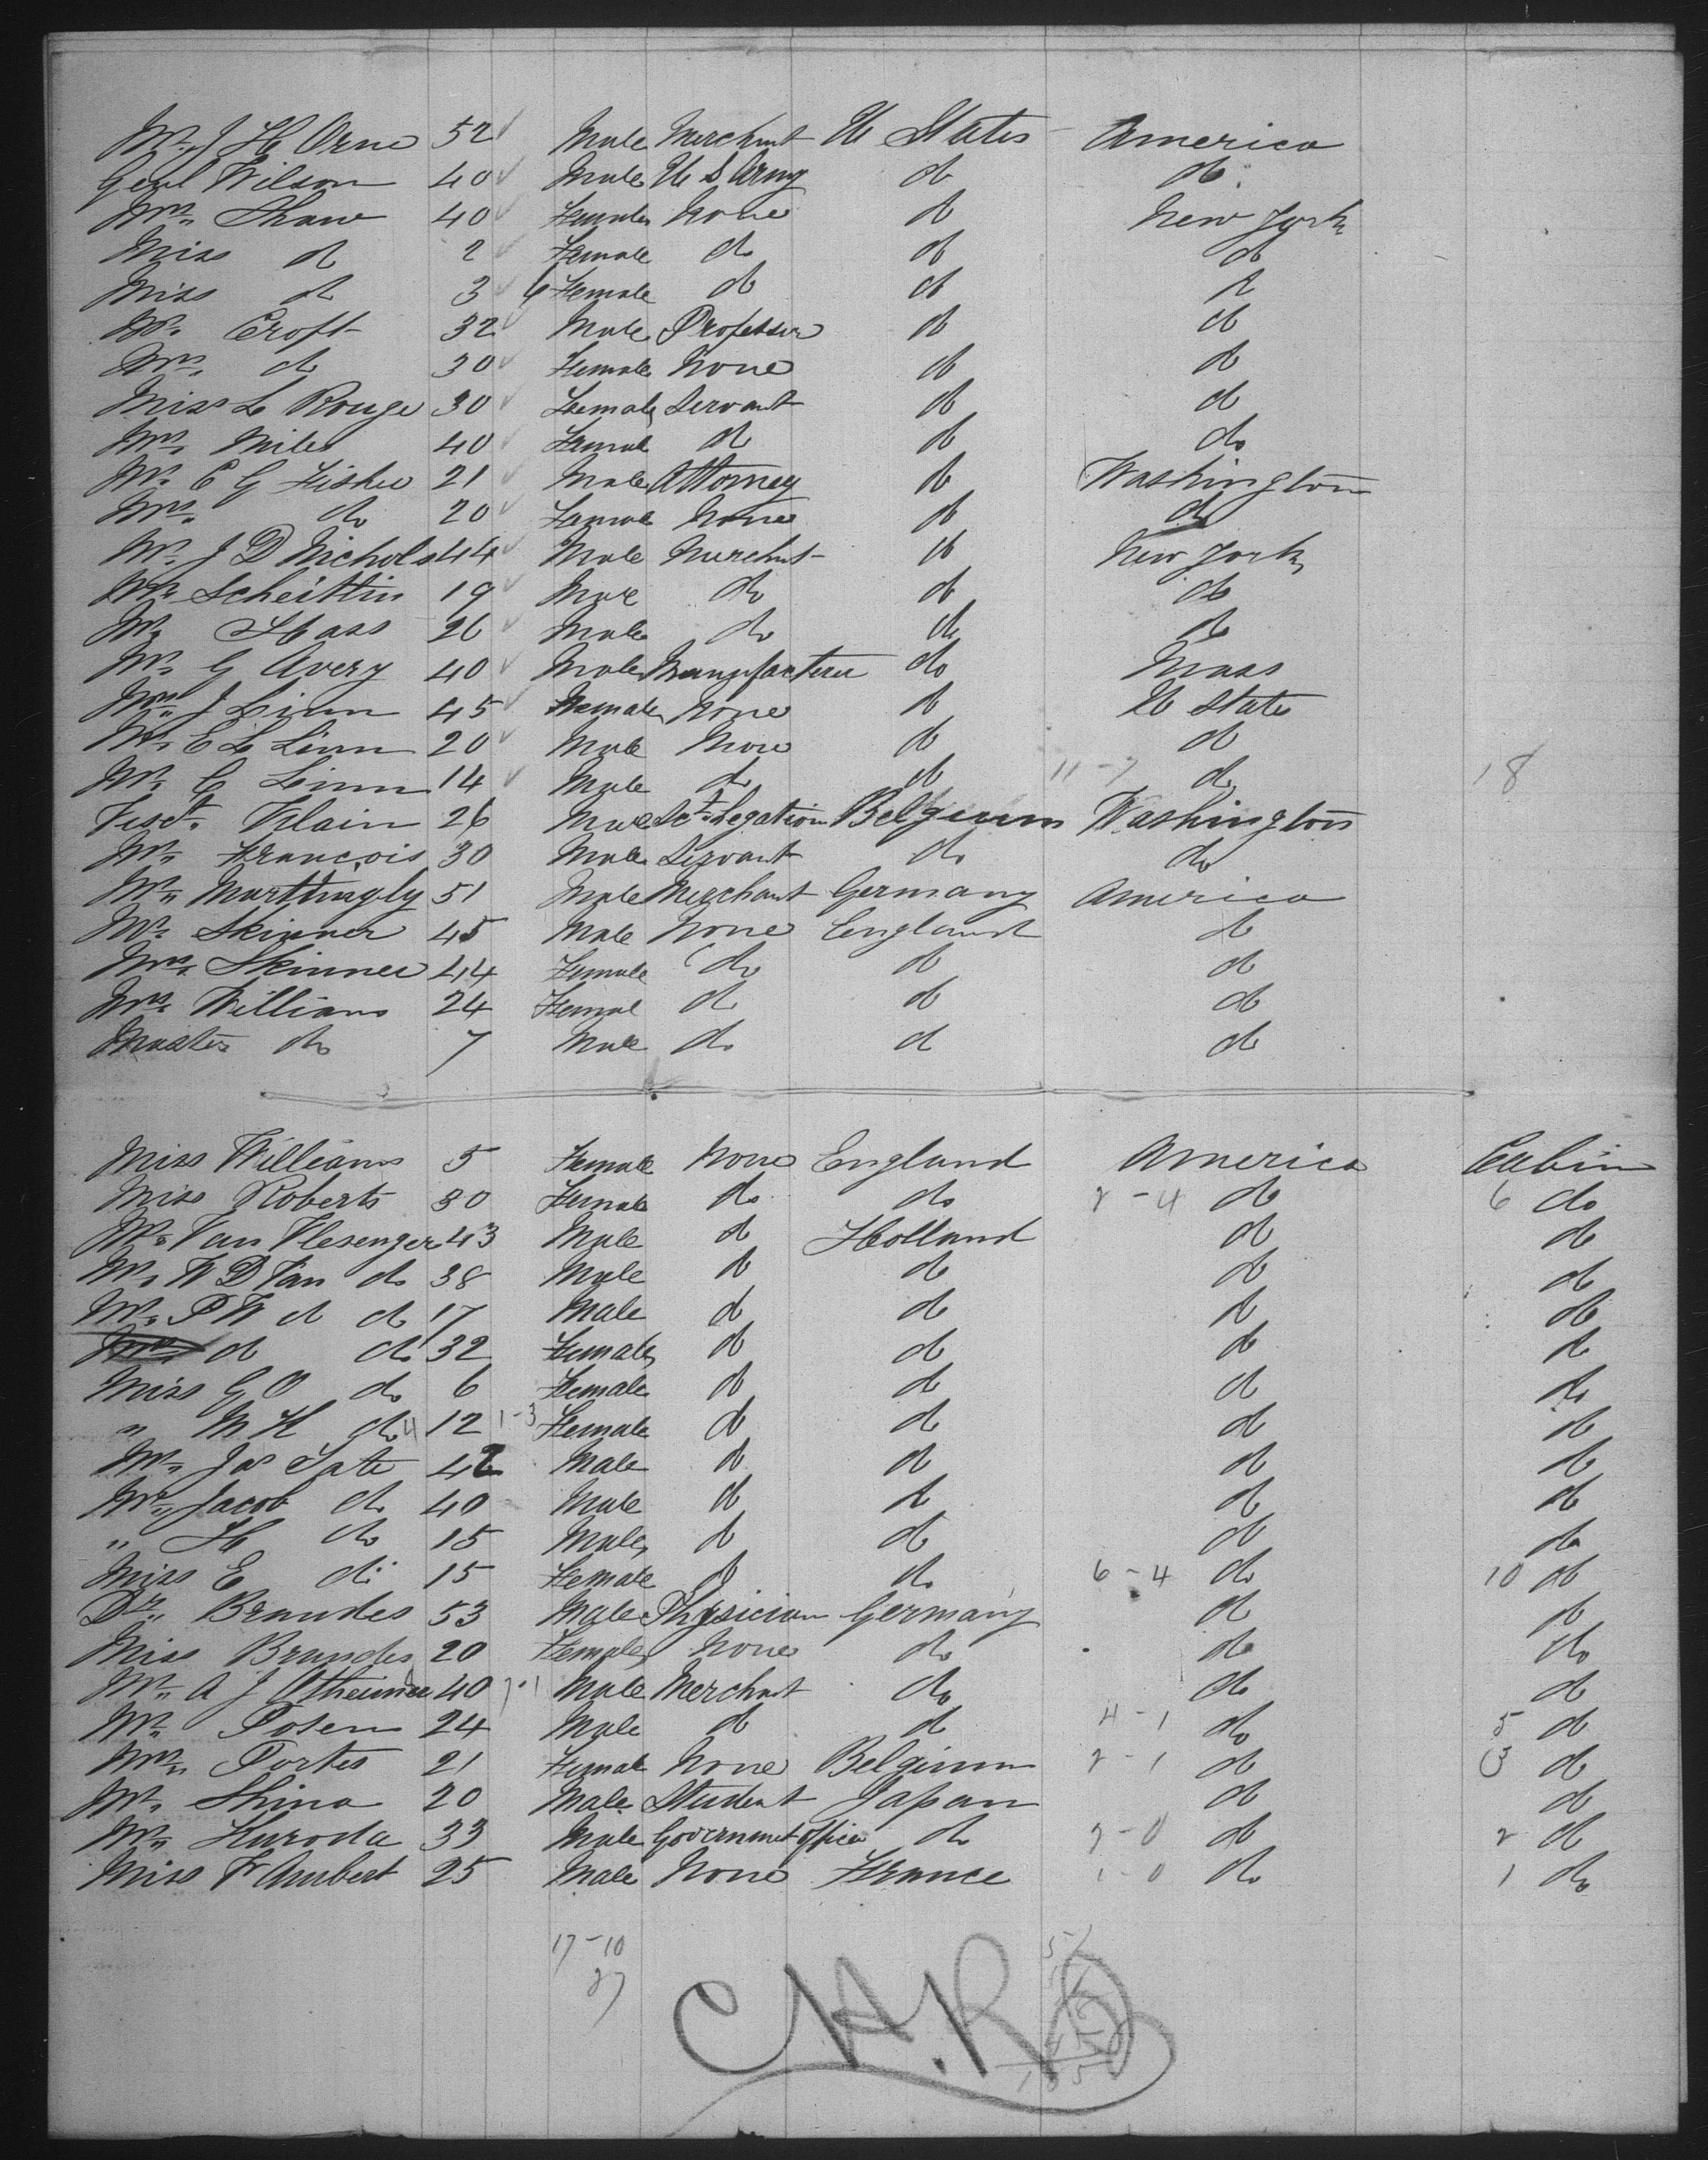 Mr. J H Orne 52 Male Merchant U States America
Genl Wilson 40 Male U S Army do do
Mrs. Shaw 40 Female None do New York
Miss do 2 Female do do do
Miss do 3 Female do do do
Mr. Croft 32 Male Professor do do
Mrs. do 30 Female None do do
Miss L Rouge 30 Female Servant do do
Mrs. Miles 40 Female do do do
Mr. C G Fisher 21 Male Attorney do Washington
Mrs. do 20 Female None do do
Mr. J D Nichols 44 Male Merchant do New York
Mr. Scheittin 19 Male do do do
Mr. Hass 26 Male do do do
Mr. G Avery 40 Male Manufacturer do Mass
Mrs. J Linn 45 Female None do U States
Mr. E L Linn 20 Male None do do
Mr. G Linn 14 Male do do 11-7 do 18
Visct. Vilain 26 Male Sct. Legation Belgium Washington
Mr. François 30 Male Servant do do
Mr. Marttingly 51 Male Merchant Germany America
Mr. Skinner 45 Male None England do
Mrs. Skinner 44 Female do do do
Mrs. Williams 24 Female do do do
Master do 7 Male do do do
Miss Williams 5 Female None England America Cabin
Miss Roberts 30 Female do do 2-4 do 6 do
Mr. Van Vlesenger 43 Male do Holland do do
Mr. W D Van do 38 Male do do do do
Mr. P W do do 17 Male do do do do
do do 32 Female do do do do
Miss G do 6 Female do do do do
" M H do 12 1-3 Female do do do do
Mr. Jas Tate 42 Male do do do do
Mr. Jacob do 40 Male do do do do
" H do 15 Male do do do do
Miss E do 15 Female do do 6-4 do 10 do
Dr. Brandes 53 Male Physician Germany do do
Miss Brandes 20 Female None do do do
Mr. A J 40 Male Merchant do do do
Mr. Posen 24 Male do do 4-1 do 5 do
Mrs. Portes 21 Female None Belgium 2-1 do 3 do
Mr. Shina 20 Male Student Japan do do
Mr. Kuroda 33 Male Government Officer do 2-0 do 2 do
Miss F Aubert 25 Male None France 1-0 do 1 do
17-10
27
C.A.R